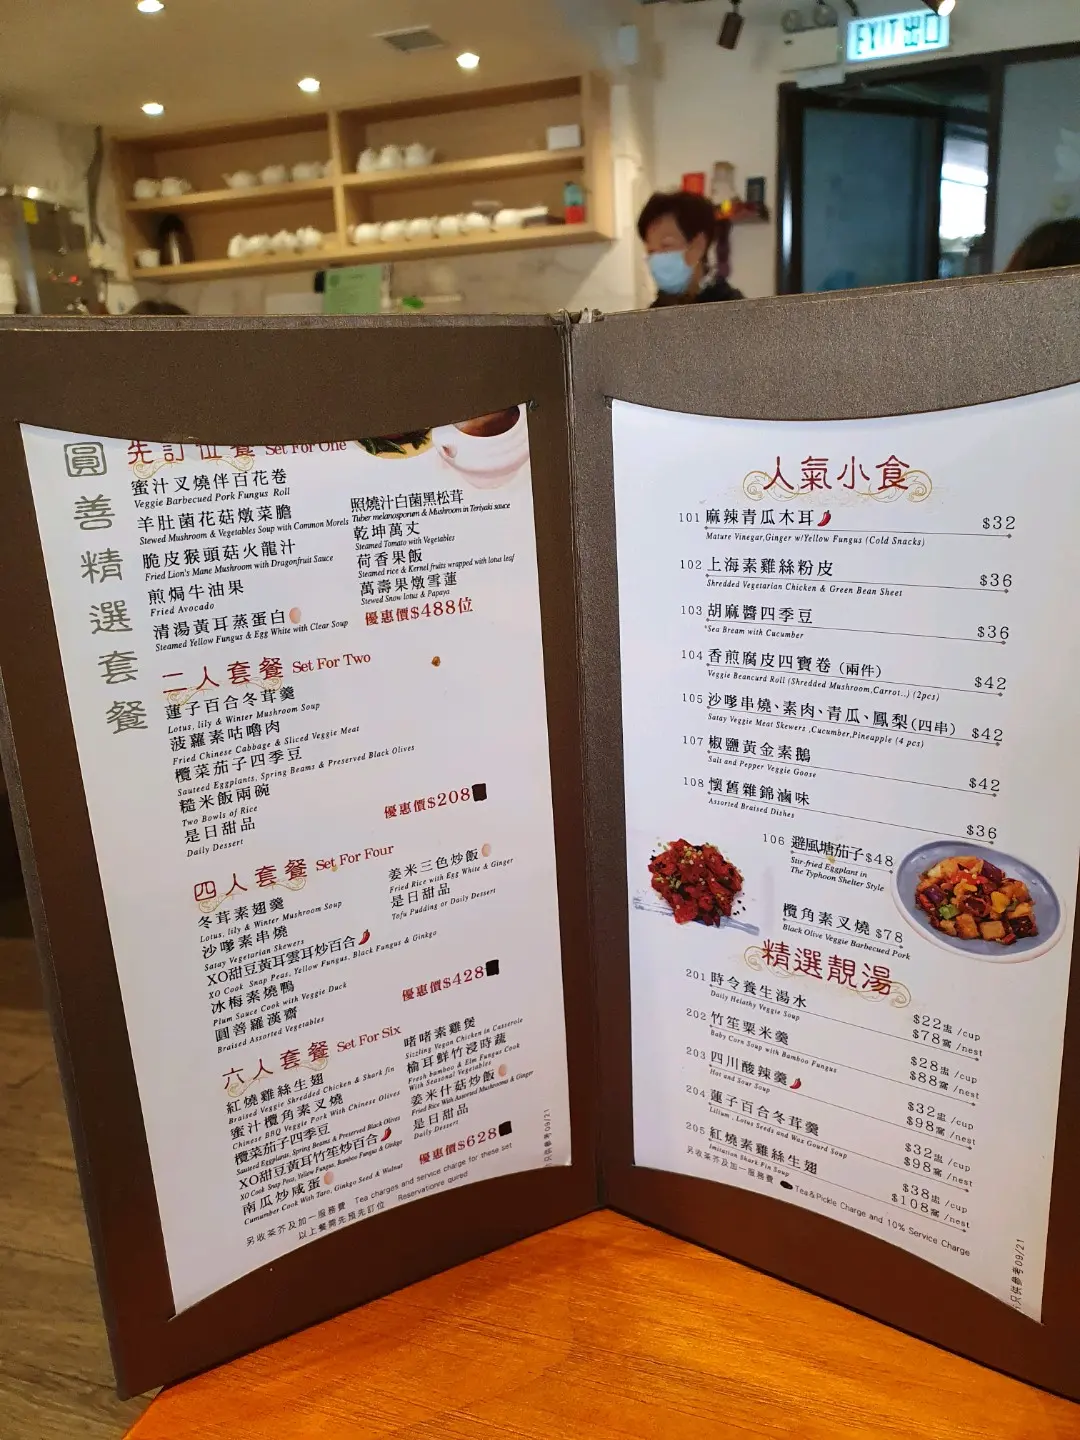 EXIT 出口
圓善精選套餐
先訂位餐 Set For One
蜜汁叉燒伴百花卷
Veggie Barbecued Pork Fungus Roll
羊肚菌花菇燉菜膽
Stewed Mushroom & Vegetables Soup with Common Morels
脆皮猴頭菇火龍汁
Fried Lion's Mane Mushroom with Dragonfruit Sauce
煎焗牛油果
Fried Avocado
清湯黃耳蒸蛋白
Steamed Yellow Fungus & Egg White with Clear Soup
照燒汁白菌黑松茸
Tuber melanosporum & Mushroom in Teriyaki sauce
乾坤萬丈
Steamed Tomato with Vegetables
荷香果飯
Steamed rice & Kernel fruits wrapped with lotus leaf
萬壽果燉雪蓮
Stewed Snow lotus & Papaya
優惠價$488位
二人套餐 Set For Two
蓮子百合冬茸羹
Lotus, lily & Winter Mushroom Soup
菠蘿素咕嚕肉
Fried Chinese Cabbage & Sliced Veggie Meat
欖菜茄子四季豆
Sauteed Eggplants, Spring Beams & Preserved Black Olives
糙米飯兩碗
Two Bowls of Rice
是日甜品
Daily Dessert
優惠價$208
四人套餐 Set For Four
冬茸素翅羹
Lotus, lily & Winter Mushroom Soup
沙嗲素串燒
Satay Vegetarian Skewers
XO甜豆黃耳雲耳炒百合
XO Cook Snap Peas, Yellow Fungus, Black Fungus & Ginkgo
冰梅素燒鴨
Plum Sauce Cook with Veggie Duck
圓善羅漢齋
Braised Assorted Vegetables
姜米三色炒飯
Fried Rice with Egg White & Ginger
是日甜品
Tofu Pudding or Daily Dessert
優惠價$428
六人套餐 Set For Six
紅燒雞絲生翅
Braised Veggie Shredded Chicken & Shark fin
蜜汁欖角素叉燒
Chinese BBQ Veggie Pork With Chinese Olives
欖菜茄子四季豆
Sauteed Eggplants, Spring Beams & Preserved Black Olives
XO甜豆黃耳竹笙炒百合
XO Cook Snap Peas, Yellow Fungus, Bamboo Fungus & Ginkgo
南瓜炒咸蛋
Cumamber Cook With Taro, Ginkgo Seed & Walnut
啫啫素雞煲
Sizzling Vegan Chicken in Casserole
榆耳鮮竹浸時蔬
Fresh bamboo & Elm Fungus Cook
With Seasonal Vegetables
姜米什菇炒飯
Fried Rice With Assorted Mushrooms & Ginger
是日甜品
Daily Dessert
優惠價$628
另收茶芥及加一服務費 Tea charges and service charge for these set
以上餐需先預先訂位 Reservationre quired
只供參考09/21
人氣小食
101 麻辣青瓜木耳 $32
Mature Vinegar,Ginger w/Yellow Fungus (Cold Snacks)
102 上海素雞絲粉皮 $36
Shredded Vegetarian Chicken & Green Bean Sheet
103 胡麻醬四季豆 $36
Sea Bream with Cucumber
104 香煎腐皮四寶卷 (兩件) $42
Veggie Beancurd Roll (Shredded Mushroom,Carrot...) (2pcs)
105 沙嗲串燒、素肉、青瓜、鳳梨(四串) $42
Satay Veggie Meat Skewers ,Cucumber,Pineapple (4 pcs)
107 椒鹽黃金素鵝 $42
Salt and Pepper Veggie Goose
108 懷舊雜錦滷味 $36
Assorted Braised Dishes
106 避風塘茄子 $48
Stir-fried Eggplant in
The Typhoon Shelter Style
欖角素叉燒 $78
Black Olive Veggie Barbecued Pork
精選靚湯
201 時令養生湯水 $22盅 /cup
Daily Helathy Veggie Soup $78窩 /nest
202 竹笙粟米羹 $28盅 /cup
Baby Corn Soup with Bamboo Fungus $88窩 /nest
203 四川酸辣羹 $32盅 /cup
Hot and Sour Soup $98窩 /nest
204 蓮子百合冬茸羹 $32盅 /cup
Lilium , Lotus Seeds and Wax Gourd Soup $98窩 /nest
205 紅燒素雞絲生翅 $38盅 /cup
Imitation Shark Fin Soup $108窩 /nest
另收茶芥及加一服務費 Tea & Pickle Charge and 10% Service Charge
只供參考09/21